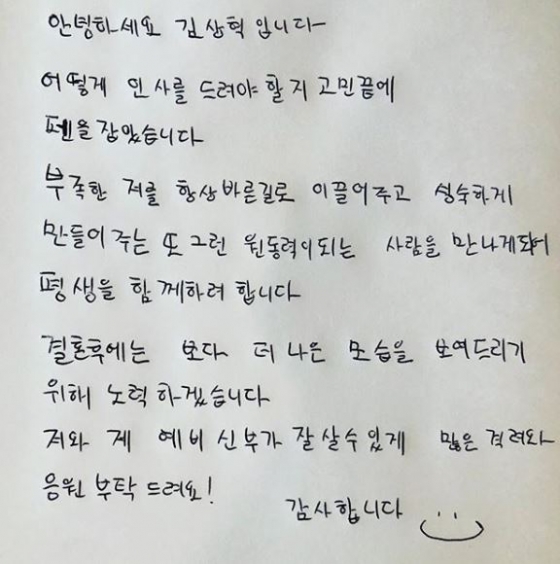 안녕하세요 김상혁 입니다-
어떻게 인사를 드려야 할지 고민끝에
펜을 잡았습니다
부족한 저를 항상바른길로 이끌어주고 성숙하게
만들어 주는 또 그런 원동력이되는 사람을 만나게되어
평생을 함께하려 합니다
결혼후에는 보다 더 나은 모습을 보여드리기
위해 노력 하겠습니다
저와 제 예비 신부가 잘 살수 있게 많은 격려와
응원 부탁 드려요!
감사합니다